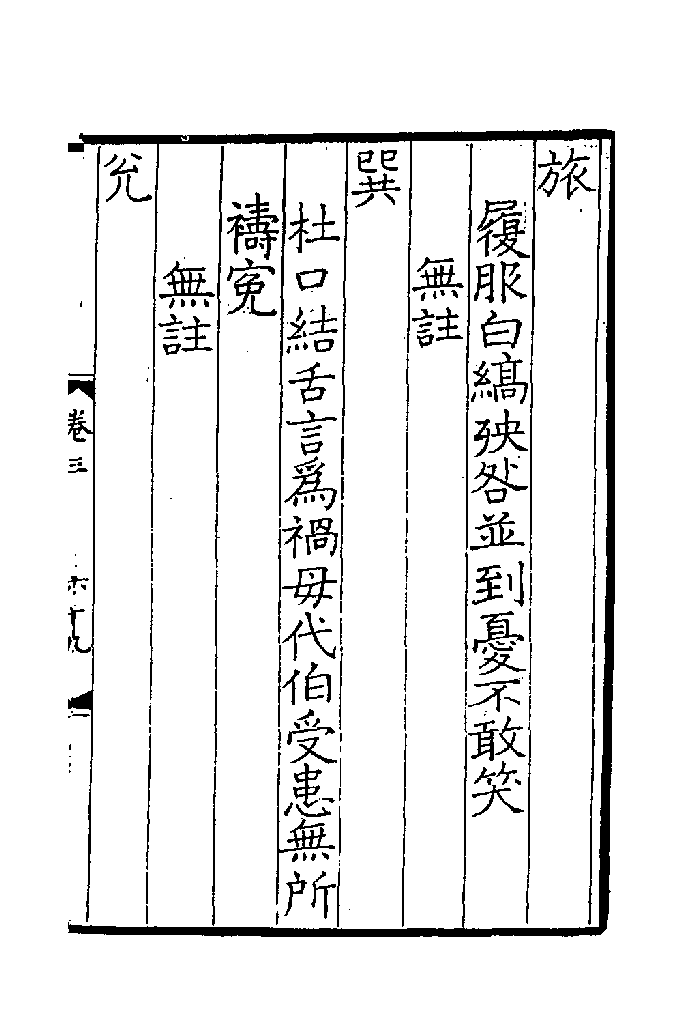 旅
履服白縞殃咎並到憂不敢笑
無註
巽
杜口結舌言爲禍毋代伯受患無所
禱寃
無註
兊
卷三
六十九